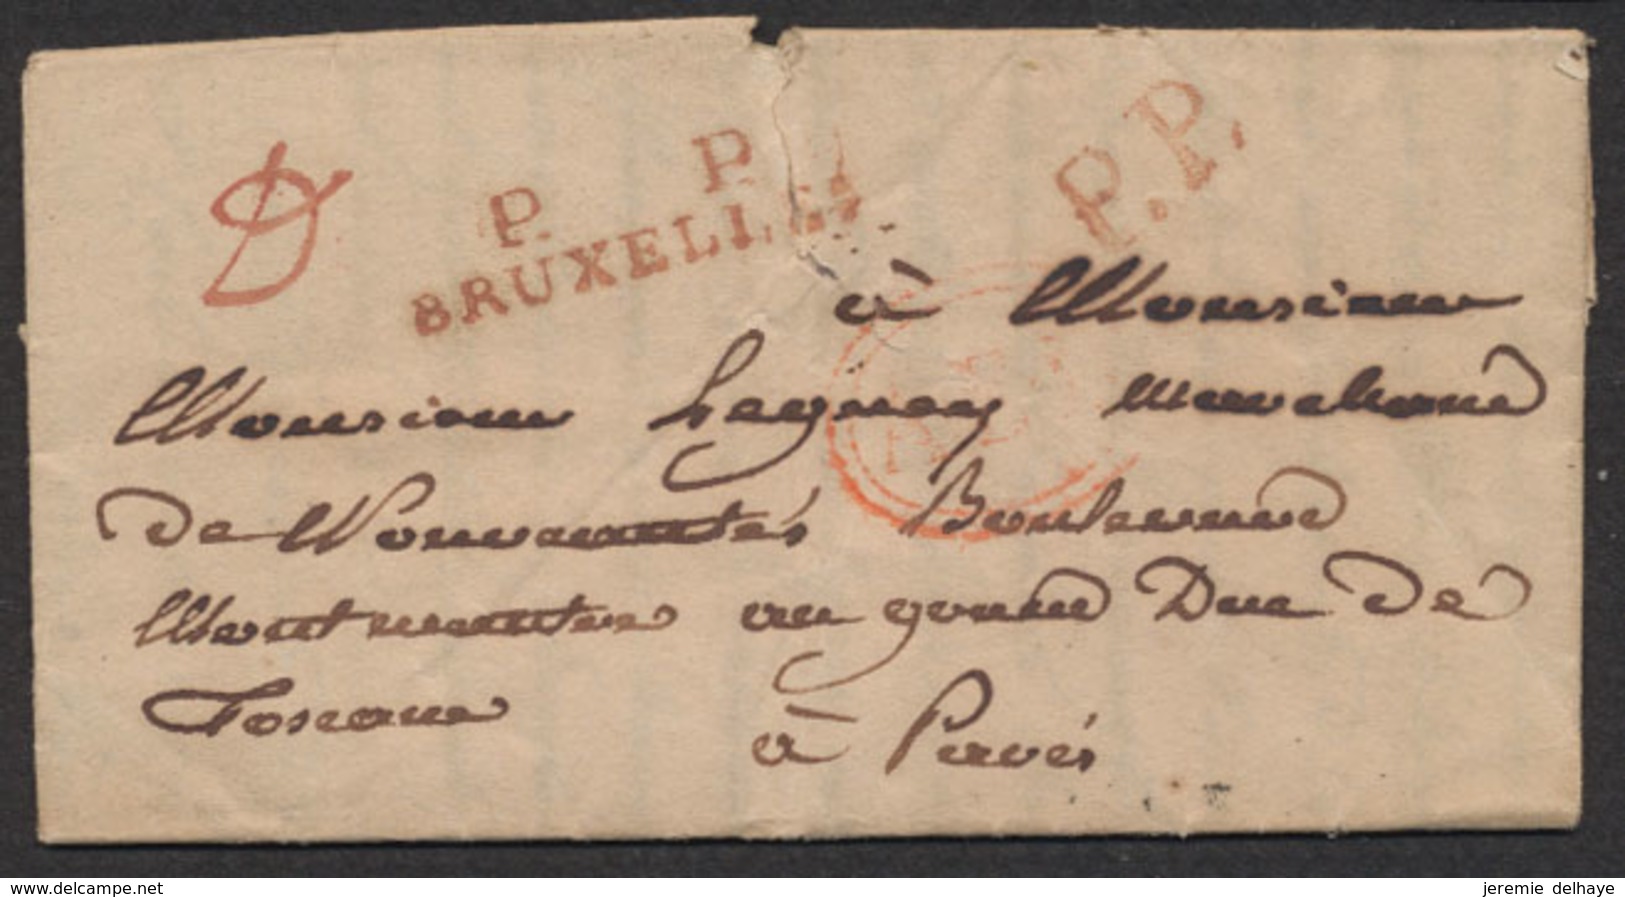 P. P.
BRUXELLES
P.P.
à Monsieur
Monsieur Legnay Marchand
de Nouvautés Boulevard
Montmartre au grand Duc de
Toscane
à Paris
www.delcampe.net
jeremie delhaye